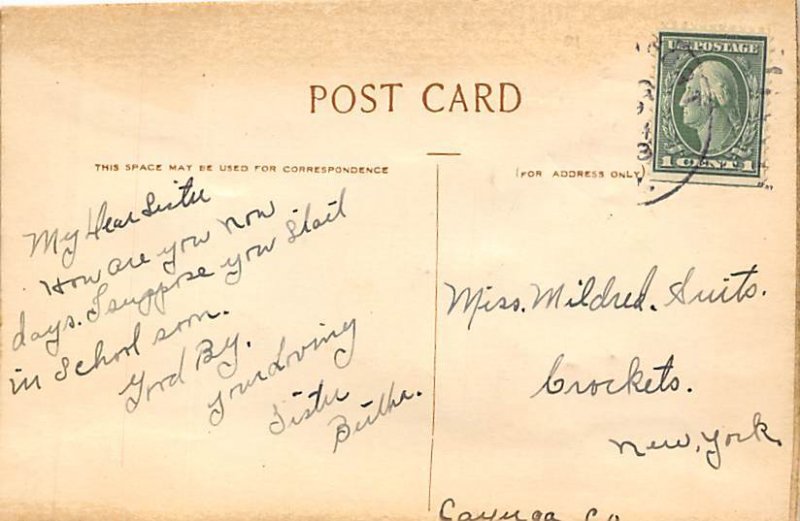 POST CARD
THIS SPACE MAY BE USED FOR CORRESPONDENCE
(FOR ADDRESS ONLY)
U.S. POSTAGE
1 CENT 1
My Dear Sister
How are you now
days. I suppose you Start
in School soon.
Good By.
Your Loving
Sister
Bertha.
Miss. Mildred. Suits.
Crockets.
New, York.
Cayuga Co